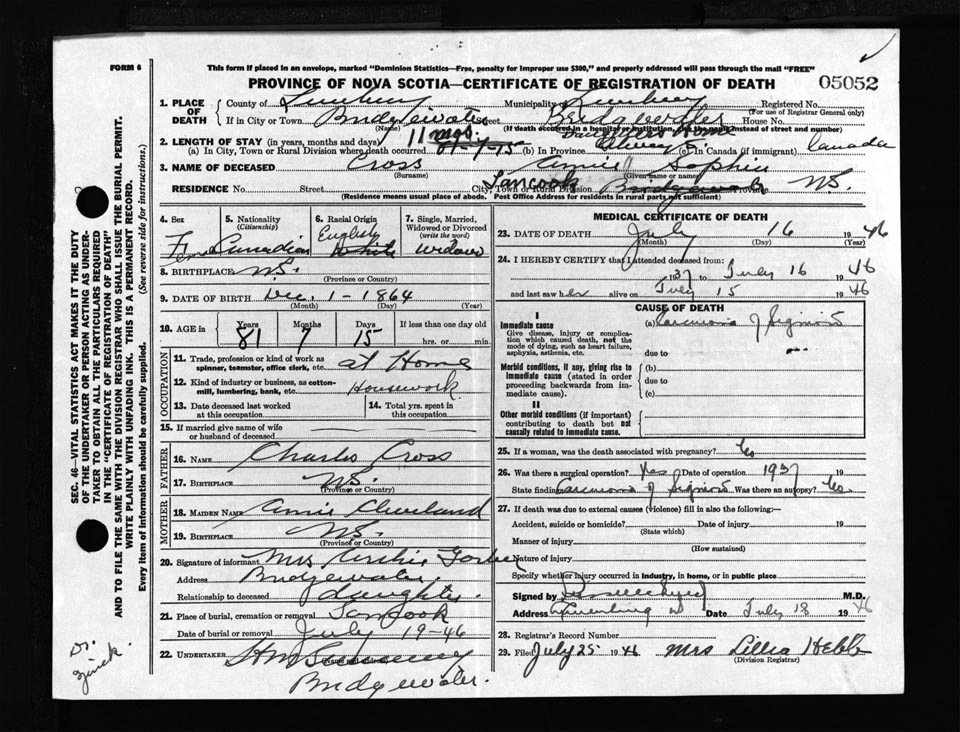 FORM 6
This form if placed in an envelope, marked "Dominion Statistics—Free, penalty for improper use $300," and properly addressed will pass through the mail "FREE"
PROVINCE OF NOVA SCOTIA—CERTIFICATE OF REGISTRATION OF DEATH
05052
1. PLACE OF DEATH
County of Lunenburg Municipality of Lunenburg Registered No.
(For use of Registrar General only)
If in City or Town Bridgewater Street Bridgewater House No.
(Name) (If death occurred in a hospital or institution, give the name instead of street and number)
2. LENGTH OF STAY (in years, months and days) 11 mos.
(a) In City, Town or Rural Division where death occurred 81-7-15 (b) In Province (c) In Canada (if immigrant) Canada
3. NAME OF DECEASED Cross Annie Sophia
(Surname) (Given name or names)
RESIDENCE No. Street City, Town or Rural Division Bridgewater NS.
(Residence means usual place of abode. Post Office Address for residents in rural parts not sufficient)
4. Sex 5. Nationality (Citizenship) 6. Racial Origin 7. Single, Married, Widowed or Divorced (write the word)
Fem Canadian English White Widow
8. BIRTHPLACE NS.
(Province or Country)
9. DATE OF BIRTH Dec. 1 - 1864
(Month) (Day) (Year)
10. AGE in Years Months Days If less than one day
81 7 15 hrs. or min.
OCCUPATION
11. Trade, profession or kind of work as spinner, teamster, office clerk, etc. at Home
12. Kind of industry or business, as cotton-mill, lumbering, bank, etc. Housework
13. Date deceased last worked at this occupation
14. Total yrs. spent in this occupation
15. If married give name of wife or husband of deceased
FATHER
16. NAME Charles Cross
17. BIRTHPLACE NS.
(Province or Country)
MOTHER
18. MAIDEN NAME Annie Cleveland
19. BIRTHPLACE NS.
(Province or Country)
20. Signature of informant Mrs Archie
Address Bridgewater.
Relationship to deceased daughter
21. Place of burial, cremation or removal Tancook
Date of burial or removal July 19-46
22. UNDERTAKER
(Name and address)
Bridgewater.
MEDICAL CERTIFICATE OF DEATH
23. DATE OF DEATH July 16 1946
(Month) (Day) (Year)
24. I HEREBY CERTIFY that I attended deceased from:
1937 to July 16 1946
and last saw her alive on July 15 1946
CAUSE OF DEATH
I
Immediate cause (a) Carcinoma of Sigmoid
Give disease, injury or complication which caused death, not the mode of dying, such as heart failure, asphyxia, asthenia, etc.
due to
Morbid conditions, if any, giving rise to immediate cause (stated in order proceeding backwards from immediate cause).
(b)
due to
(c)
II
Other morbid conditions (if important) contributing to death but not causally related to immediate cause.
25. If a woman, was the death associated with pregnancy? No
26. Was there a surgical operation? Yes Date of operation 1937 19
State findings Carcinoma of Sigmoid Was there an autopsy? No
27. If death was due to external causes (violence) fill in also the following:—
Accident, suicide or homicide? Date of injury 19
(State which)
Manner of injury
(How sustained)
Nature of injury
Specify whether injury occurred in industry, in home, or in public place
Signed by M.D.
Address Lunenburg Date July 18 1946
28. Registrar's Record Number
29. Filed July 25 1946 Mrs Lillia Hebb
(Division Registrar)
SEC. 46—VITAL STATISTICS ACT MAKES IT THE DUTY
OF THE UNDERTAKER OR PERSON ACTING AS UNDER-
TAKER TO OBTAIN ALL THE PARTICULARS REQUIRED
IN THE "CERTIFICATE OF REGISTRATION OF DEATH"
AND TO FILE THE SAME WITH THE DIVISION REGISTRAR WHO SHALL ISSUE THE BURIAL PERMIT.
WRITE PLAINLY WITH UNFADING INK. THIS IS A PERMANENT RECORD.
Every item of Information should be carefully supplied. (See reverse side for instructions.)
Dr.
Zinck.